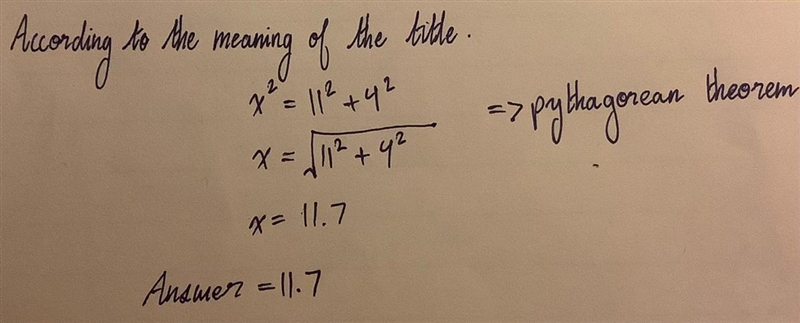 According to the meaning of the title.
x² = 11² + 4² => pythagorean theorem
x = √11² + 4²
x = 11.7
Answer = 11.7